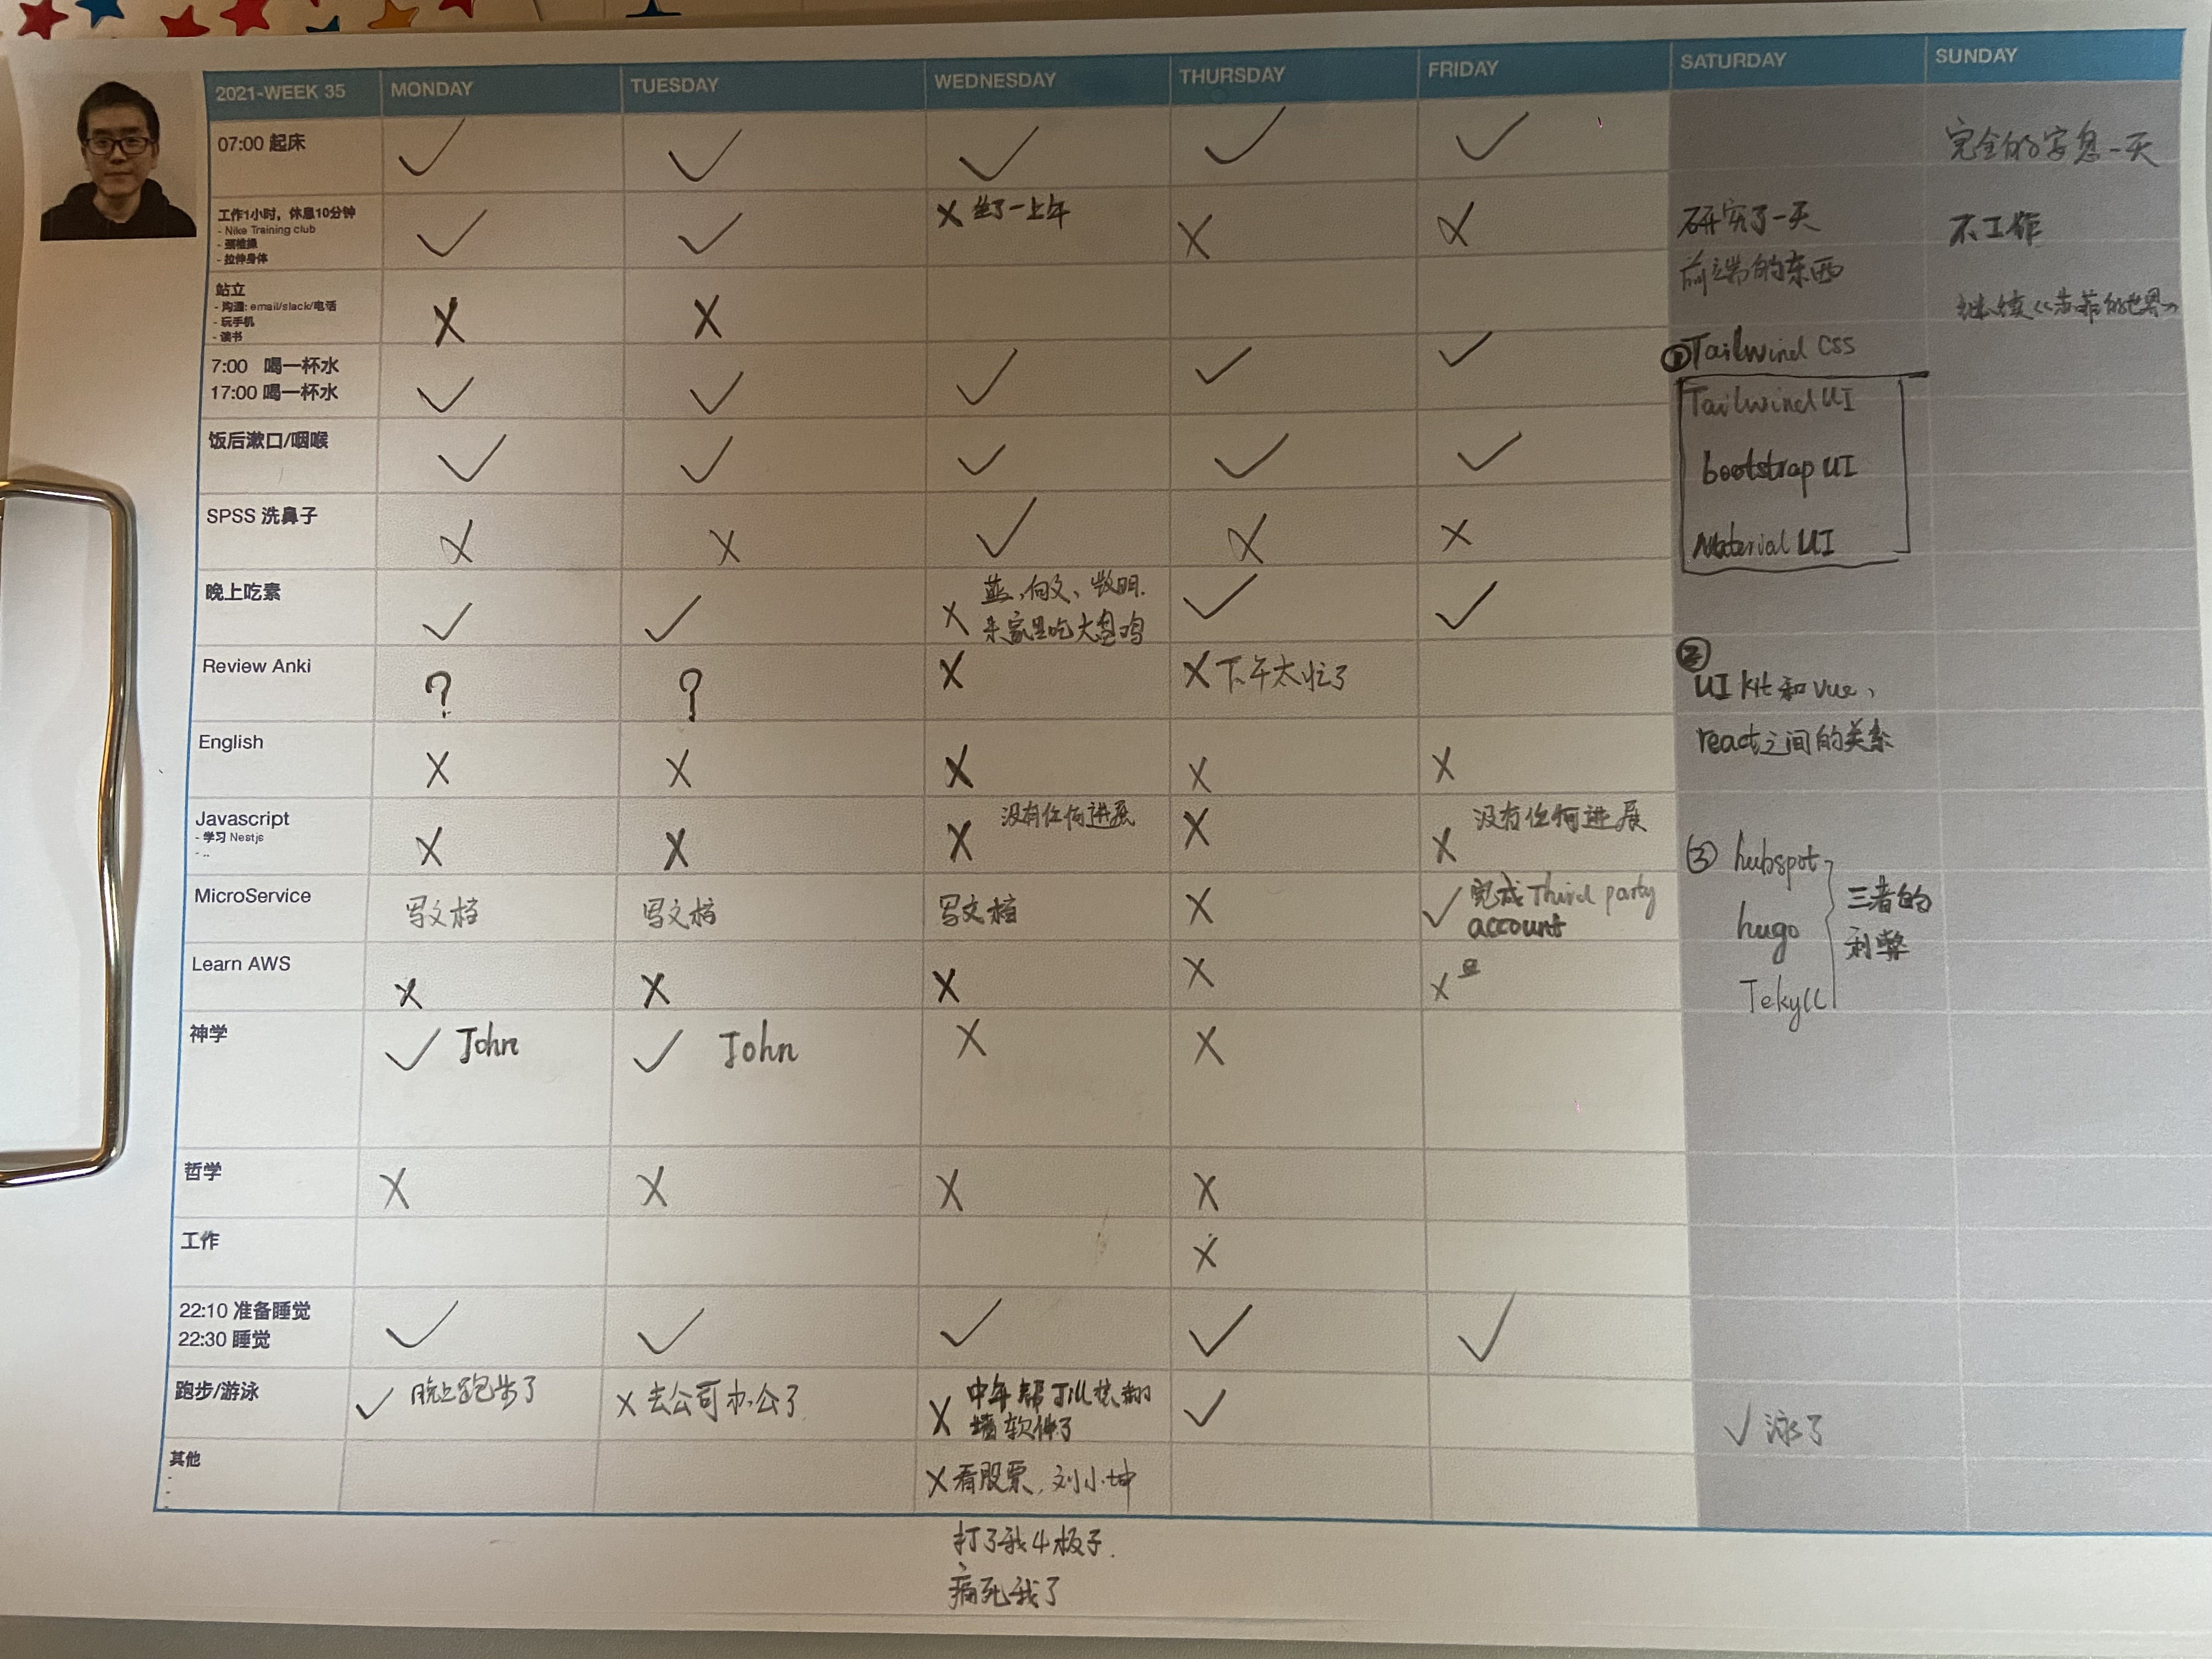 2021-WEEK 35 MONDAY TUESDAY WEDNESDAY THURSDAY FRIDAY SATURDAY SUNDAY
07:00 起床 ✓ ✓ ✓ ✓ ✓
完全的安息一天
工作1小时，休息10分钟
- Nike Training club
- 颈椎操
- 拉伸身体
✓ ✓ X 坐了一上午 X X
研究了一天
前端的东西
不工作
站立
- 沟通: email/slack/电话
- 玩手机
- 读书
X X
继续《苏菲的世界》
7:00 喝一杯水
17:00 喝一杯水
✓ ✓ ✓ ✓ ✓
① Tailwind CSS
Tailwind UI
饭后漱口/咽喉 ✓ ✓ ✓ ✓ ✓
bootstrap UI
SPSS 洗鼻子 X X ✓ X X
Material UI
晚上吃素 ✓ ✓ X
来家里吃大盘鸡
✓ ✓
Review Anki ? ? X X 下午太忙了
②
UI kit 和 vue,
English X X X X X
react之间的关系
Javascript
- 学习 Nestjs
- ..
X X X 没有任何进展 X X 没有任何进展
③ hubspot
MicroService 写文档 写文档 写文档 X ✓ 完成 Third party
account
hugo
三者的
利弊
Learn AWS X X X X X
Tekyll
神学 ✓ John ✓ John X X
哲学 X X X X
工作 X
22:10 准备睡觉
22:30 睡觉
✓ ✓ ✓ ✓ ✓
跑步/游泳 ✓ 晚上跑步了 X 去公司办公了 X 中午帮Jill装翻
墙软件了
✓ ✓ 泳了
其他
-
-
X 看股票, 刘小坤
打了我4板子.
痛死我了